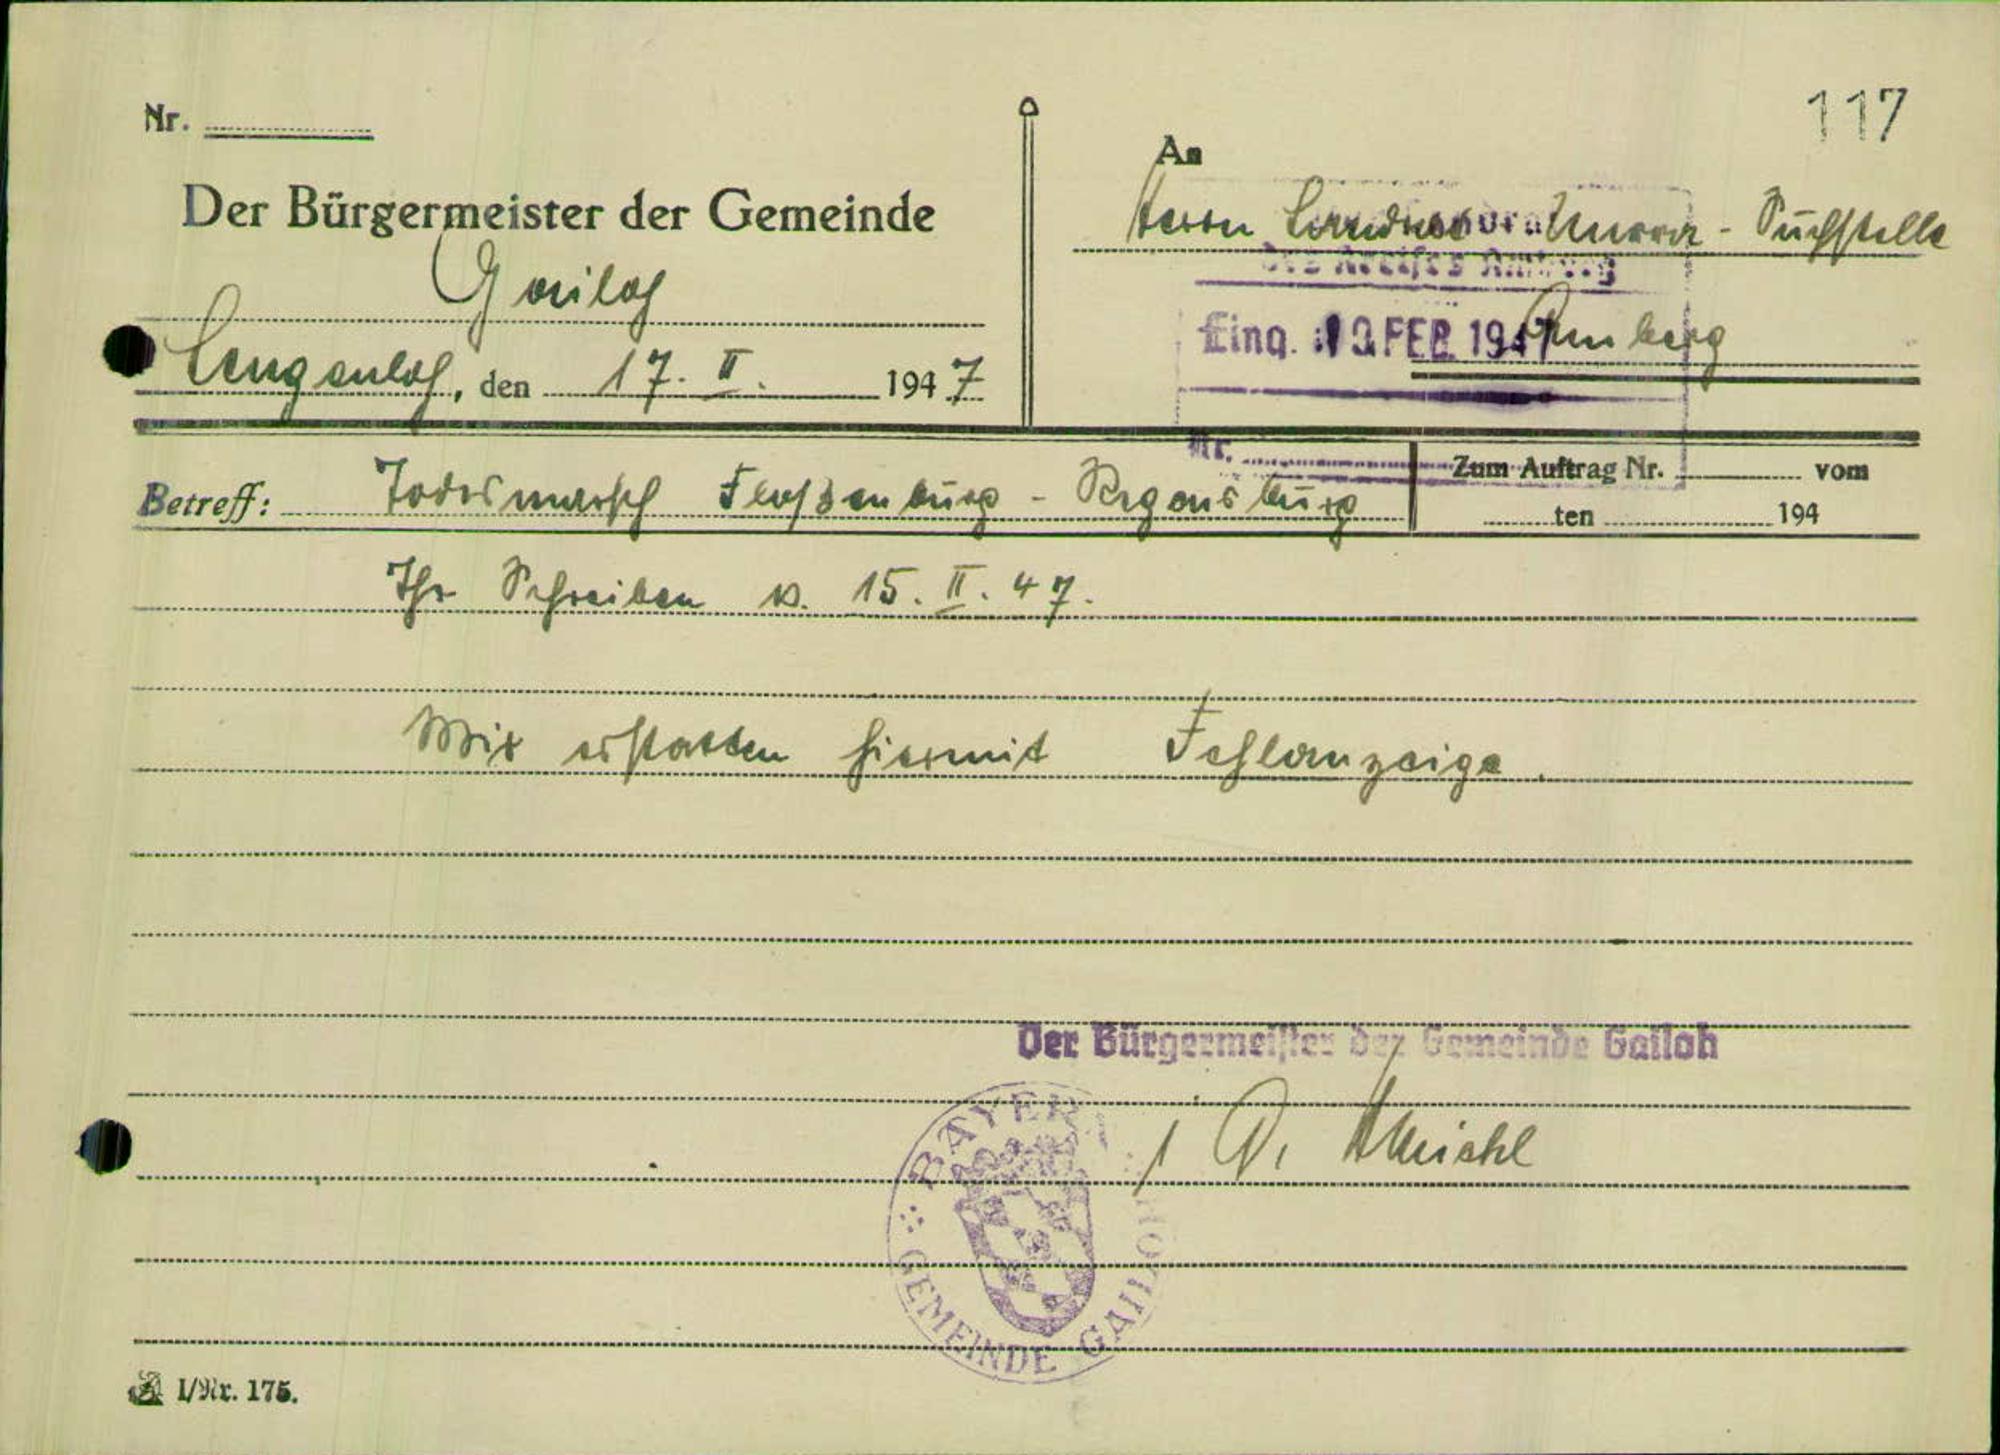 117
Nr.
Der Bürgermeister der Gemeinde
Gailoh
Lengenloh, den 17. II. 1947
An
Herrn Landrat Unrra - Suchstelle
des Kreises Amberg
Eing. FEB. 1947
Amberg
Nr.
Betreff: Todesmarsch Floßenbürg - Regensburg
Zum Auftrag Nr. vom
ten 194
Ihr Schreiben v. 15. II. 47.
Wir erstatten hiermit Fehlanzeige.
Der Bürgermeister der Gemeinde Gailoh
i. V.
BAYERN
GEMEINDE GAILOH
I/Nr. 175.